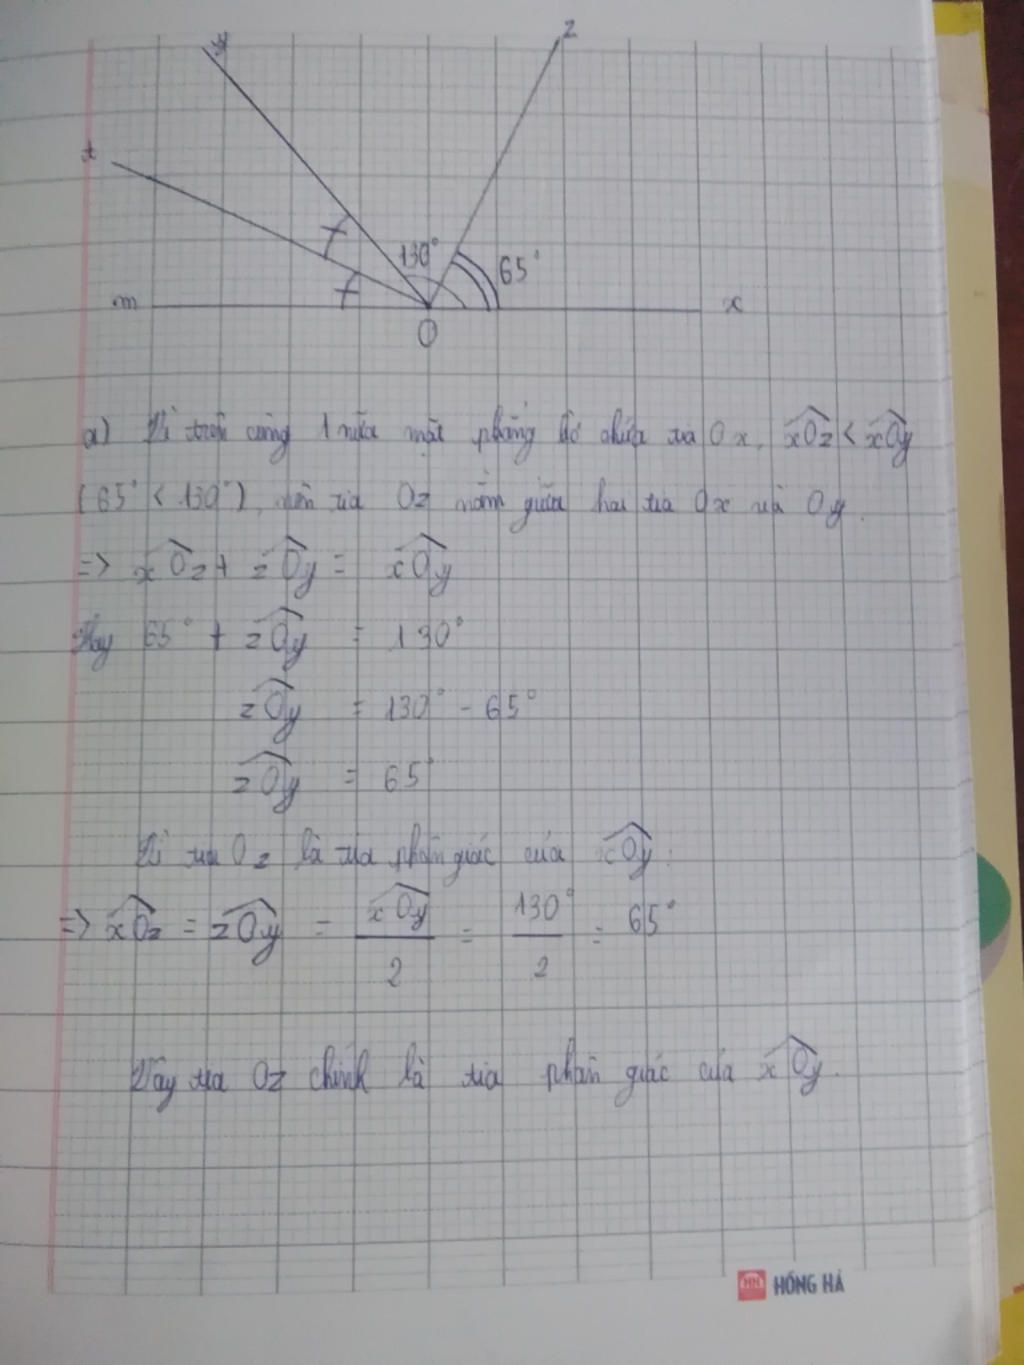 y
z
t
130°
65°
m
x
O
a) Vì trên cùng 1 nửa mặt phẳng bờ chứa tia Ox, xOz < xOy
(65° < 130°), nên tia Oz nằm giữa hai tia Ox và Oy.
=> xOz + zOy = xOy
Hay 65° + zOy = 130°
zOy = 130° - 65°
zOy = 65°
Vì tia Oz là tia phân giác của xOy.
=> xOz = zOy = xOy/2 = 130°/2 = 65°
Vậy tia Oz chính là tia phân giác của xOy.
HH HỒNG HÀ